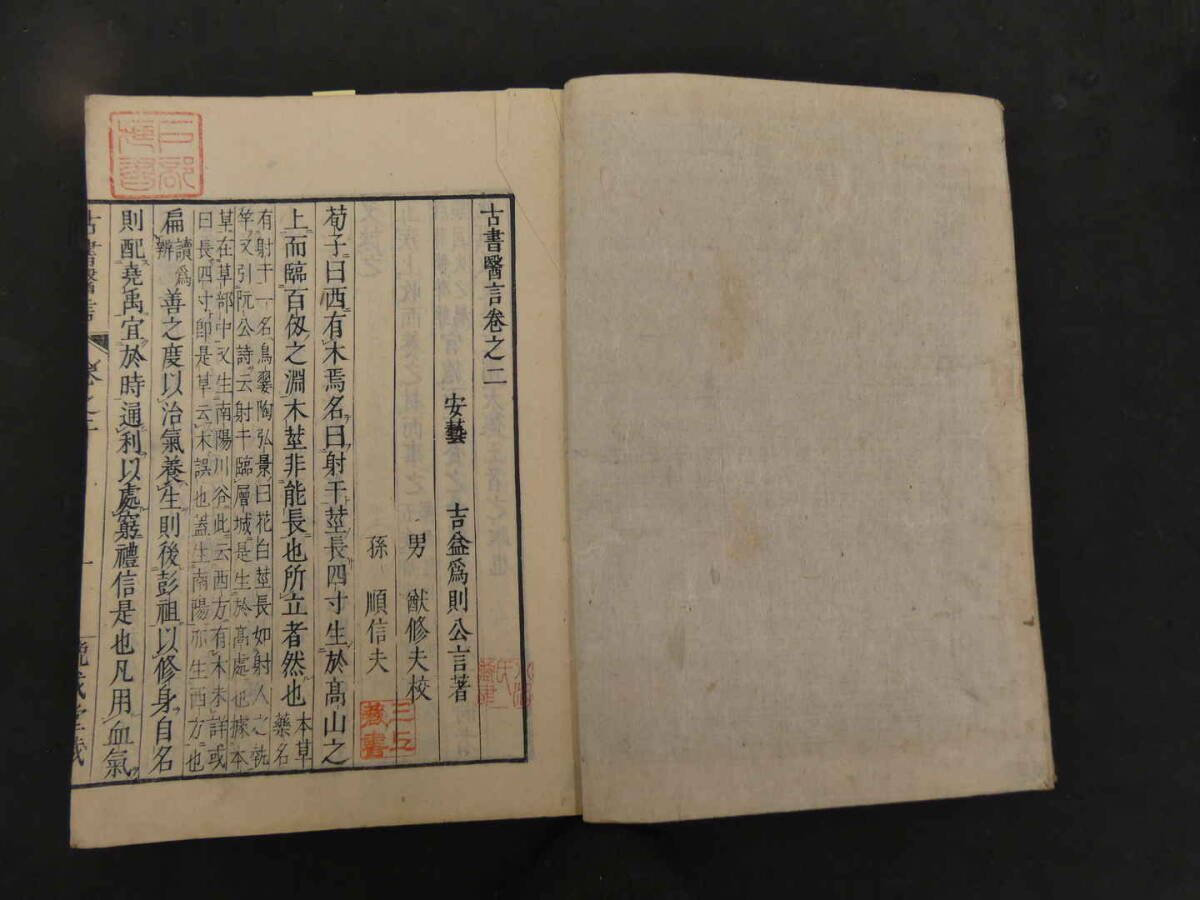 古書醫言卷之二
安藝 吉益爲則公言著
男 猷修夫校
孫 順信夫
荀子曰西有木焉名曰射干莖長四寸生於髙山之
上而臨百仭之淵木莖非能長也所立者然也本草藥名
有射干一名烏翣陶弘景曰花白莖長如射人之執
竿又引阮公詩云射干臨層城是生於髙處也據本
草在草部中又生南陽川谷此云西方有木未詳或
曰長四寸即是草云木誤也蓋生南陽亦生西方也
扁讀爲辨善之度以治氣養生則後彭祖以修身自名
則配堯禹宜於時通利以處窮禮信是也凡用血氣
古書醫言 卷之二 一
三上藏書